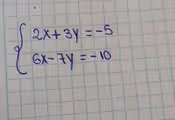 2x+3y=-5
6x-7y=-10